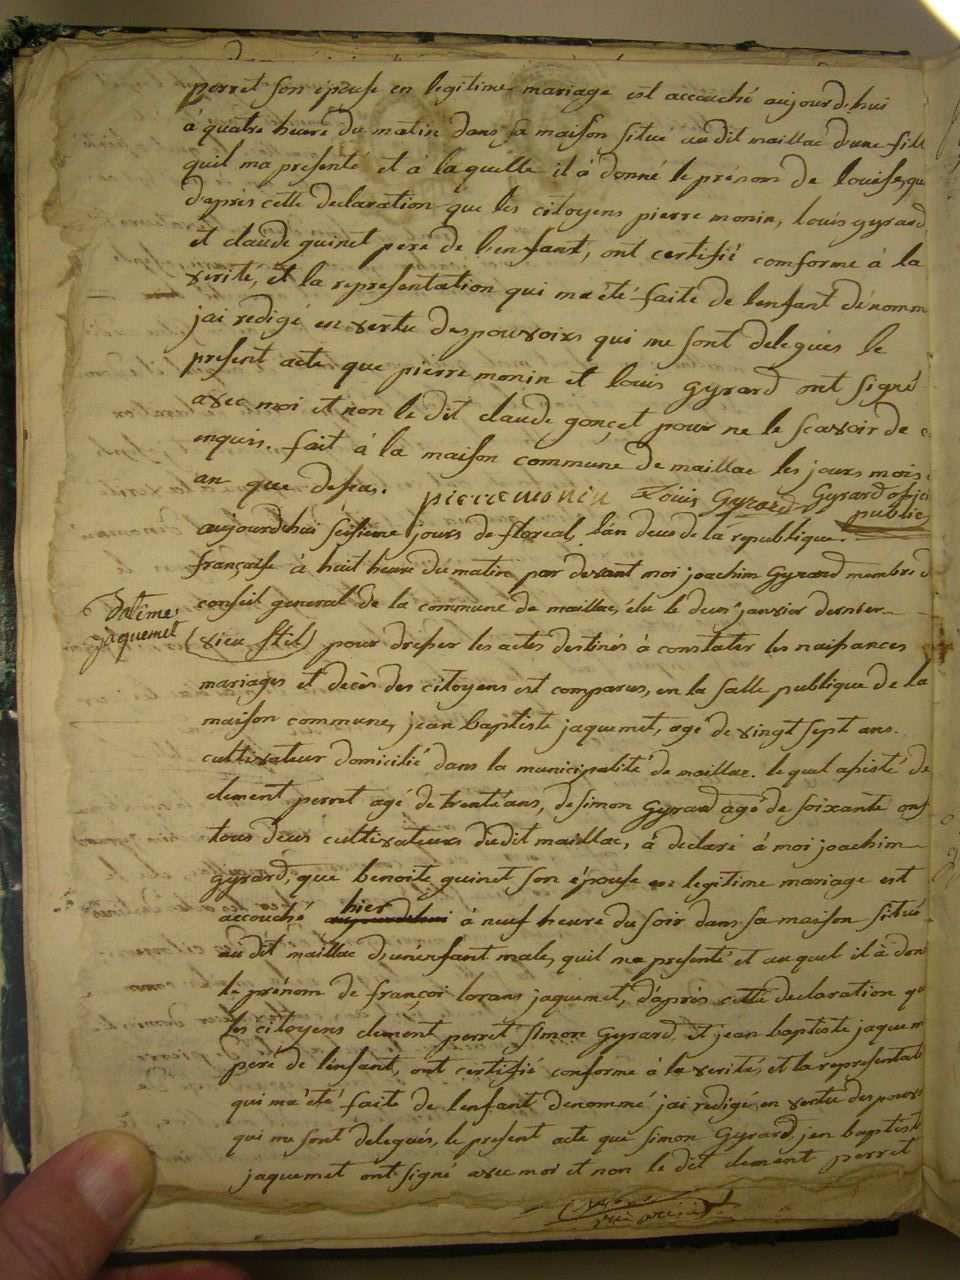 perret son épouse en legitime mariage est accouché aujourdhui
à quatre heure du matin dans sa maison situé audit maillac d'une fill
quil ma presenté et à laquelle il à donné le prenom de louise, que
d'après cette declaration que les citoyens pierre monin, louis gyrard
et claude quinet pere de l'enfant, ont certifié comforme à la
verité, et la representation qui ma été faite de l'enfant dénomm
jai redigé en vertu des pouvoirs qui me sont delegués le
present acte que pierre monin et louis gyrard ont signé
avec moi et non le dit claude gonçet pour ne le scavoir de ce
enquis. fait à la maison commune de maillac les jours mois
an que dessus. pierre monin Louis Gyrard Gyrard officié
public
aujourdhui seisieme jours de floreal, l'an deux de la republique
française à huit heure du matin par devant moi joachim Gyrard membre d
conseil general de la commune de maillac, élu le deux janvier dernier
(vieu stil) pour dresser les actes destinés à constater les naissances
jaquemet
mariages et decès des citoyens est comparus, en la salle publique de la
maison commune, jean baptiste jaquemet, agé de vingt sept ans
cultivateur domicilié dans la municipalité de maillac. le quel assisté de
clement perret agé de trente ans, de simon Gyrard agé de soixante ons
tous deux cultivateurs dudit maillac, à declaré à moi joachim
gyrard, que benoite quinet son épouse en legitime mariage est
hier
accouché aujourdehui à neuf heure du soir dans sa maison situé
audit maillac d'un'enfant male, quil ma presenté et au quel il à don
le prénom de françoi lorans jaquemet, d'après cette declaration que
les citoyens clement perret simon Gyrard, et jean baptiste jaquem
peré de l'enfant, ont certifié conforme à la verité, et la representati
qui ma été faite de l'enfant denommé jai redigé en vertu des pouvo
qui me sont delegués, le present acte que simon Gyrard, jen baptiste
jaquemet ont signé avec moi et non le dit clement perret